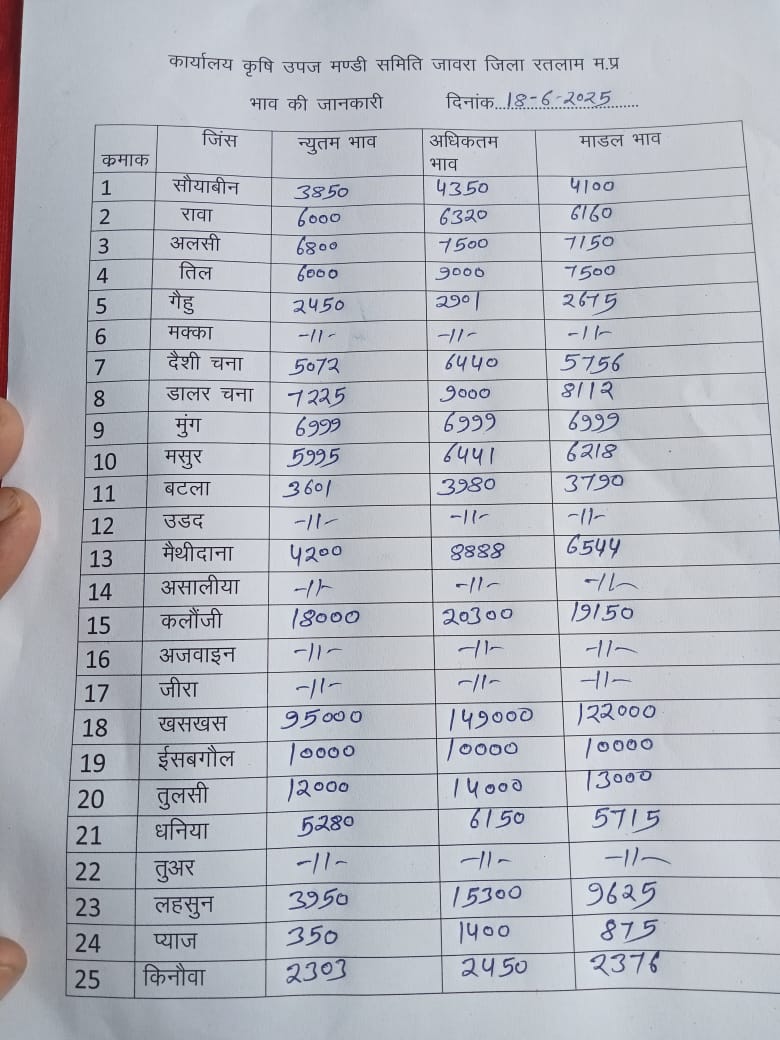 कार्यालय कृषि उपज मण्डी समिति जावरा जिला रतलाम म.प्र
भाव की जानकारी दिनांक..18-6-2025......
कमाक जिंस न्युतम भाव अधिकतम भाव माडल भाव
1 सौयाबीन 3850 4350 4100
2 रावा 6000 6320 6160
3 अलसी 6800 7500 7150
4 तिल 6000 9000 7500
5 गैहु 2450 2901 2675
6 मक्का -11- -11- -11-
7 दैशी चना 5072 6440 5756
8 डालर चना 7225 9000 8112
9 मुंग 6999 6999 6999
10 मसुर 5995 6441 6218
11 बटला 3601 3980 3790
12 उडद -11- -11- -11-
13 मैथीदाना 4200 8888 6544
14 असालीया -11- -11- -11-
15 कलौंजी 18000 20300 19150
16 अजवाइन -11- -11- -11-
17 जीरा -11- -11- -11-
18 खसखस 95000 149000 122000
19 ईसबगौल 10000 10000 10000
20 तुलसी 12000 14000 13000
21 धनिया 5280 6150 5715
22 तुअर -11- -11- -11-
23 लहसुन 3950 15300 9625
24 प्याज 350 1400 875
25 किनौवा 2303 2450 2376